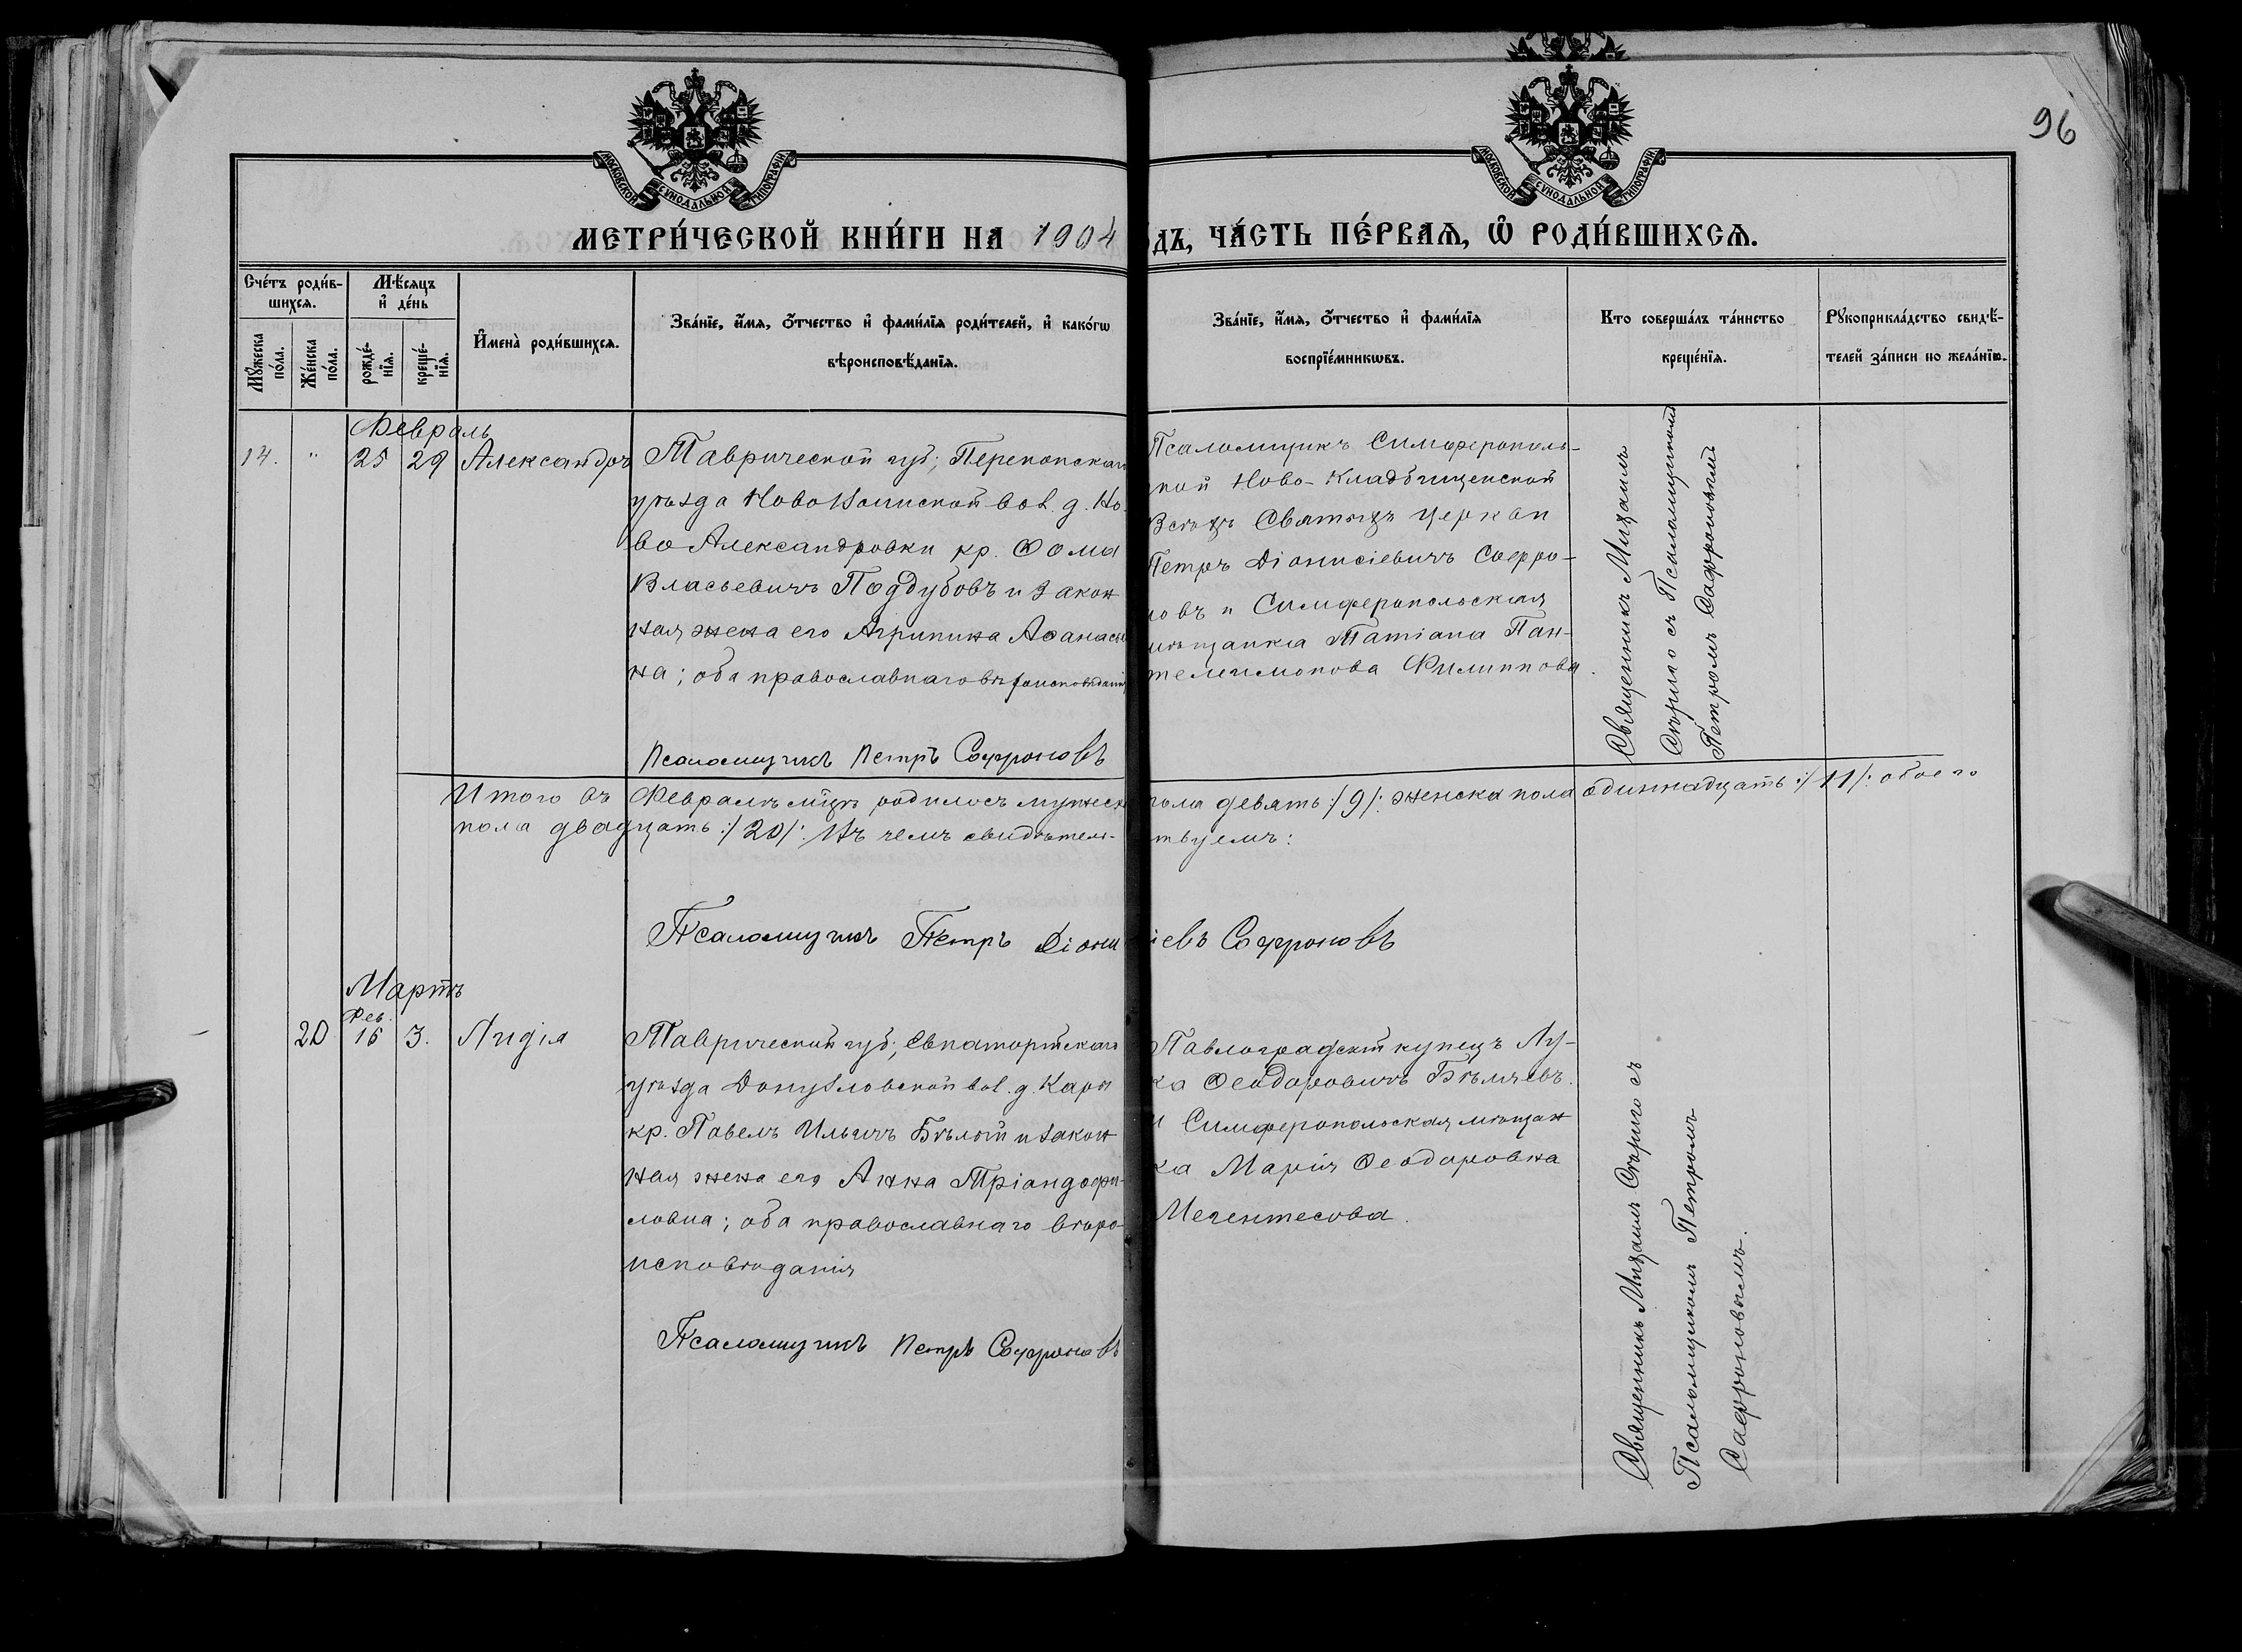 96
МОСКОВСКОЙ СѴНОДАЛЬНОЙ ТИПОГРАФІИ.
МОСКОВСКОЙ СѴНОДАЛЬНОЙ ТИПОГРАФІИ.
МЕТРИ́ЧЕСКОЙ КНИ́ГИ НА 1904
ДЪ, ЧА́СТЬ ПЕ́РВАѦ, Ѡ҆ РОДИ́ВШИХСѦ.
Сче́тъ роди́в-
шихсѧ.
Мꙋ́жеска по́ла.
Же́нска по́ла.
Мѣ́сѧцъ
и҆ де́нь
рожде́-нїѧ.
креще́-нїѧ.
И҆мена̀ роди́вшихсѧ.
Зва́нїе, и҆́мѧ, ѻ҆́тчество и҆ фами́лїѧ роди́телей, и҆ како́гѡ
вѣроисповѣ́данїѧ.
Зва́нїе, и҆́мѧ, ѻ҆́тчество и҆ фами́лїѧ
воспрїе́мникѡвъ.
Кто соверша́лъ та́инство
креще́нїѧ.
Рꙋкоприкла́дство свидѣ́-
телей за́писи по жела́нїю.
Февраль
14. " 25 29 Александръ
Таврической губ; Перекопскаго
уѣзда вол. д. Но-
во Александровки кр. Ѳома
Власьевичъ Поддубовъ и закон
ная жена его Агрипина Аѳанасье
на; оба православнаго вѣроисповѣданія
Псаломщикъ Петръ Софроновъ
Псаломщикъ Симферополь-
ской Ново-Кладбищенской
Всѣхъ Святыхъ церкви
Петръ Діонисіевичъ Софро-
новъ и Симферопольская
мѣщанка Татіана Пан-
телеимонова Филиппова.
Священникъ Михаилъ
Спѣрило съ Псаломщикомъ
Петромъ Софроновымъ
Итого въ Февралѣ мцѣ родилось мужеск пола девять :/9/: женска пола одиннадцать :/11/: обоего
пола двадцать :/20/: Въ чемъ свидѣтельствуемъ:
Псаломщикъ Петръ Діонисіевъ Софроновъ
Мартъ
Фев.
20 16 3. Лидія
Таврической губ; Евпаторійскаго
уѣзда Донузлавской вол. д. Кары
кр. Павелъ Ильичъ Бѣлый и закон
ная жена его Анна Тріандофи-
ловна; оба православнаго вѣро-
исповѣданія
Псаломщикъ Петръ Софроновъ
Павлоградскій купецъ Лу-
ка Ѳеодоровичъ Бѣляевъ.
и Симферопольская мѣщан
ка Марія Ѳеодоровна
Мегентесова.
Священникъ Михаилъ съ
Псаломщикомъ Петромъ
Софроновымъ.